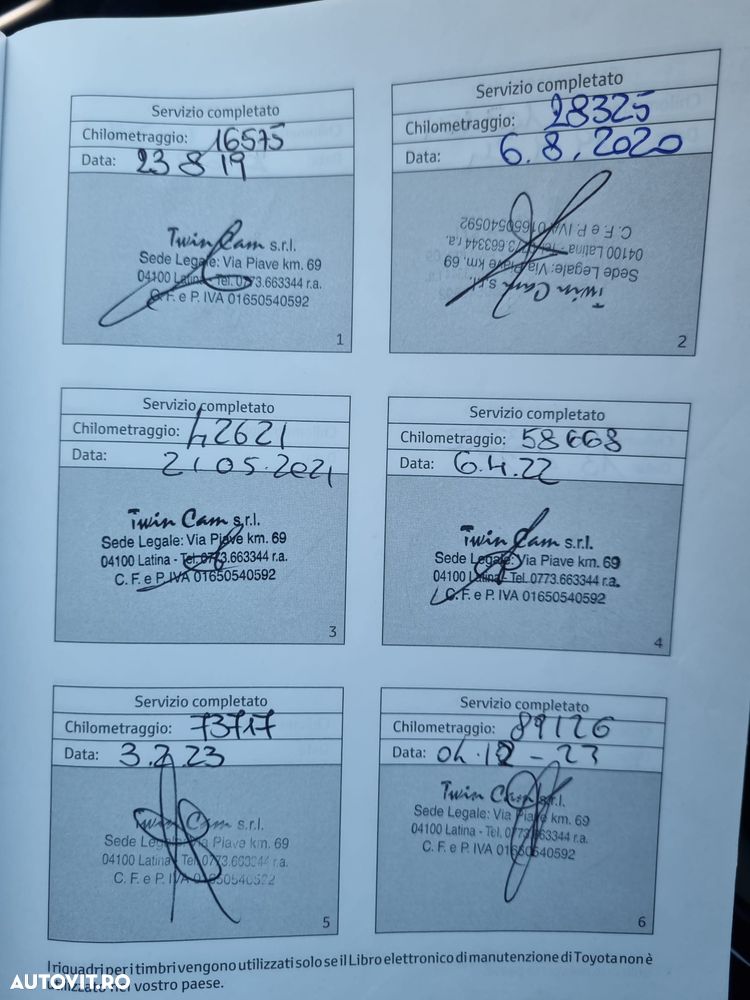 Servizio completato
Chilometraggio: 16575
Data: 23 8 19
Twin Cam s.r.l.
Sede Legale: Via Piave km. 69
04100 Latina - Tel. 0773.663344 r.a.
C. F. e P. IVA 01650540592
1
Servizio completato
Chilometraggio: 28325
Data: 6.8.2020
Twin Cam s.r.l.
Sede Legale: Via Piave km. 69
04100 Latina - Tel. 0773.663344 r.a.
C. F. e P. IVA 01650540592
2
Servizio completato
Chilometraggio: 42621
Data: 21 05.2021
Twin Cam s.r.l.
Sede Legale: Via Piave km. 69
04100 Latina - Tel. 0773.663344 r.a.
C. F. e P. IVA 01650540592
3
Servizio completato
Chilometraggio: 58668
Data: 6.4.22
Twin Cam s.r.l.
Sede Legale: Via Piave km. 69
04100 Latina - Tel. 0773.663344 r.a.
C. F. e P. IVA 01650540592
4
Servizio completato
Chilometraggio: 73717
Data: 3.2.23
Twin Cam s.r.l.
Sede Legale: Via Piave km. 69
04100 Latina - Tel. 0773.663344 r.a.
C. F. e P. IVA 01650540592
5
Servizio completato
Chilometraggio: 89126
Data: 04.12-23
Twin Cam s.r.l.
Sede Legale: Via Piave km. 69
04100 Latina - Tel. 0773.663344 r.a.
C. F. e P. IVA 01650540592
6
I riquadri per i timbri vengono utilizzati solo se il Libro elettronico di manutenzione di Toyota non è
utilizzato nel vostro paese.
AUTOVIT.RO